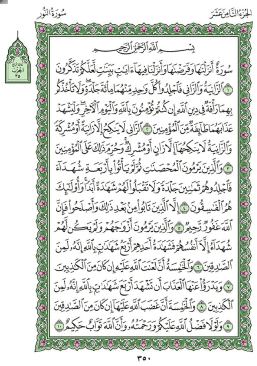 الجزء الثامن عشر
سورة النور
بِسْمِ اللَّهِ الرَّحْمَٰنِ الرَّحِيمِ
سُورَةٌ أَنزَلْنَاهَا وَفَرَضْنَاهَا وَأَنزَلْنَا فِيهَا آيَاتٍ بَيِّنَاتٍ لَّعَلَّكُمْ تَذَكَّرُونَ
١ الزَّانِيَةُ وَالزَّانِي فَاجْلِدُوا كُلَّ وَاحِدٍ مِّنْهُمَا مِائَةَ جَلْدَةٍ وَلَا تَأْخُذْكُم
بِهِمَا رَأْفَةٌ فِي دِينِ اللَّهِ إِن كُنتُمْ تُؤْمِنُونَ بِاللَّهِ وَالْيَوْمِ الْآخِرِ وَلْيَشْهَدْ
عَذَابَهُمَا طَائِفَةٌ مِّنَ الْمُؤْمِنِينَ ٢ الزَّانِي لَا يَنكِحُ إِلَّا زَانِيَةً أَوْ مُشْرِكَةً
وَالزَّانِيَةُ لَا يَنكِحُهَا إِلَّا زَانٍ أَوْ مُشْرِكٌ وَحُرِّمَ ذَٰلِكَ عَلَى الْمُؤْمِنِينَ
٣ وَالَّذِينَ يَرْمُونَ الْمُحْصَنَاتِ ثُمَّ لَمْ يَأْتُوا بِأَرْبَعَةِ شُهَدَاءَ
فَاجْلِدُوهُمْ ثَمَانِينَ جَلْدَةً وَلَا تَقْبَلُوا لَهُمْ شَهَادَةً أَبَدًا وَأُولَٰئِكَ
هُمُ الْفَاسِقُونَ ٤ إِلَّا الَّذِينَ تَابُوا مِن بَعْدِ ذَٰلِكَ وَأَصْلَحُوا فَإِنَّ
اللَّهَ غَفُورٌ رَّحِيمٌ ٥ وَالَّذِينَ يَرْمُونَ أَزْوَاجَهُمْ وَلَمْ يَكُن لَّهُمْ
شُهَدَاءُ إِلَّا أَنفُسُهُمْ فَشَهَادَةُ أَحَدِهِمْ أَرْبَعُ شَهَادَاتٍ بِاللَّهِ إِنَّهُ لَمِنَ
الصَّادِقِينَ ٦ وَالْخَامِسَةُ أَنَّ لَعْنَتَ اللَّهِ عَلَيْهِ إِن كَانَ مِنَ الْكَاذِبِينَ
٧ وَيَدْرَأُ عَنْهَا الْعَذَابَ أَن تَشْهَدَ أَرْبَعَ شَهَادَاتٍ بِاللَّهِ إِنَّهُ لَمِنَ
الْكَاذِبِينَ ٨ وَالْخَامِسَةَ أَنَّ غَضَبَ اللَّهِ عَلَيْهَا إِن كَانَ مِنَ الصَّادِقِينَ
٩ وَلَوْلَا فَضْلُ اللَّهِ عَلَيْكُمْ وَرَحْمَتُهُ وَأَنَّ اللَّهَ تَوَّابٌ حَكِيمٌ ١٠
٣٥٠